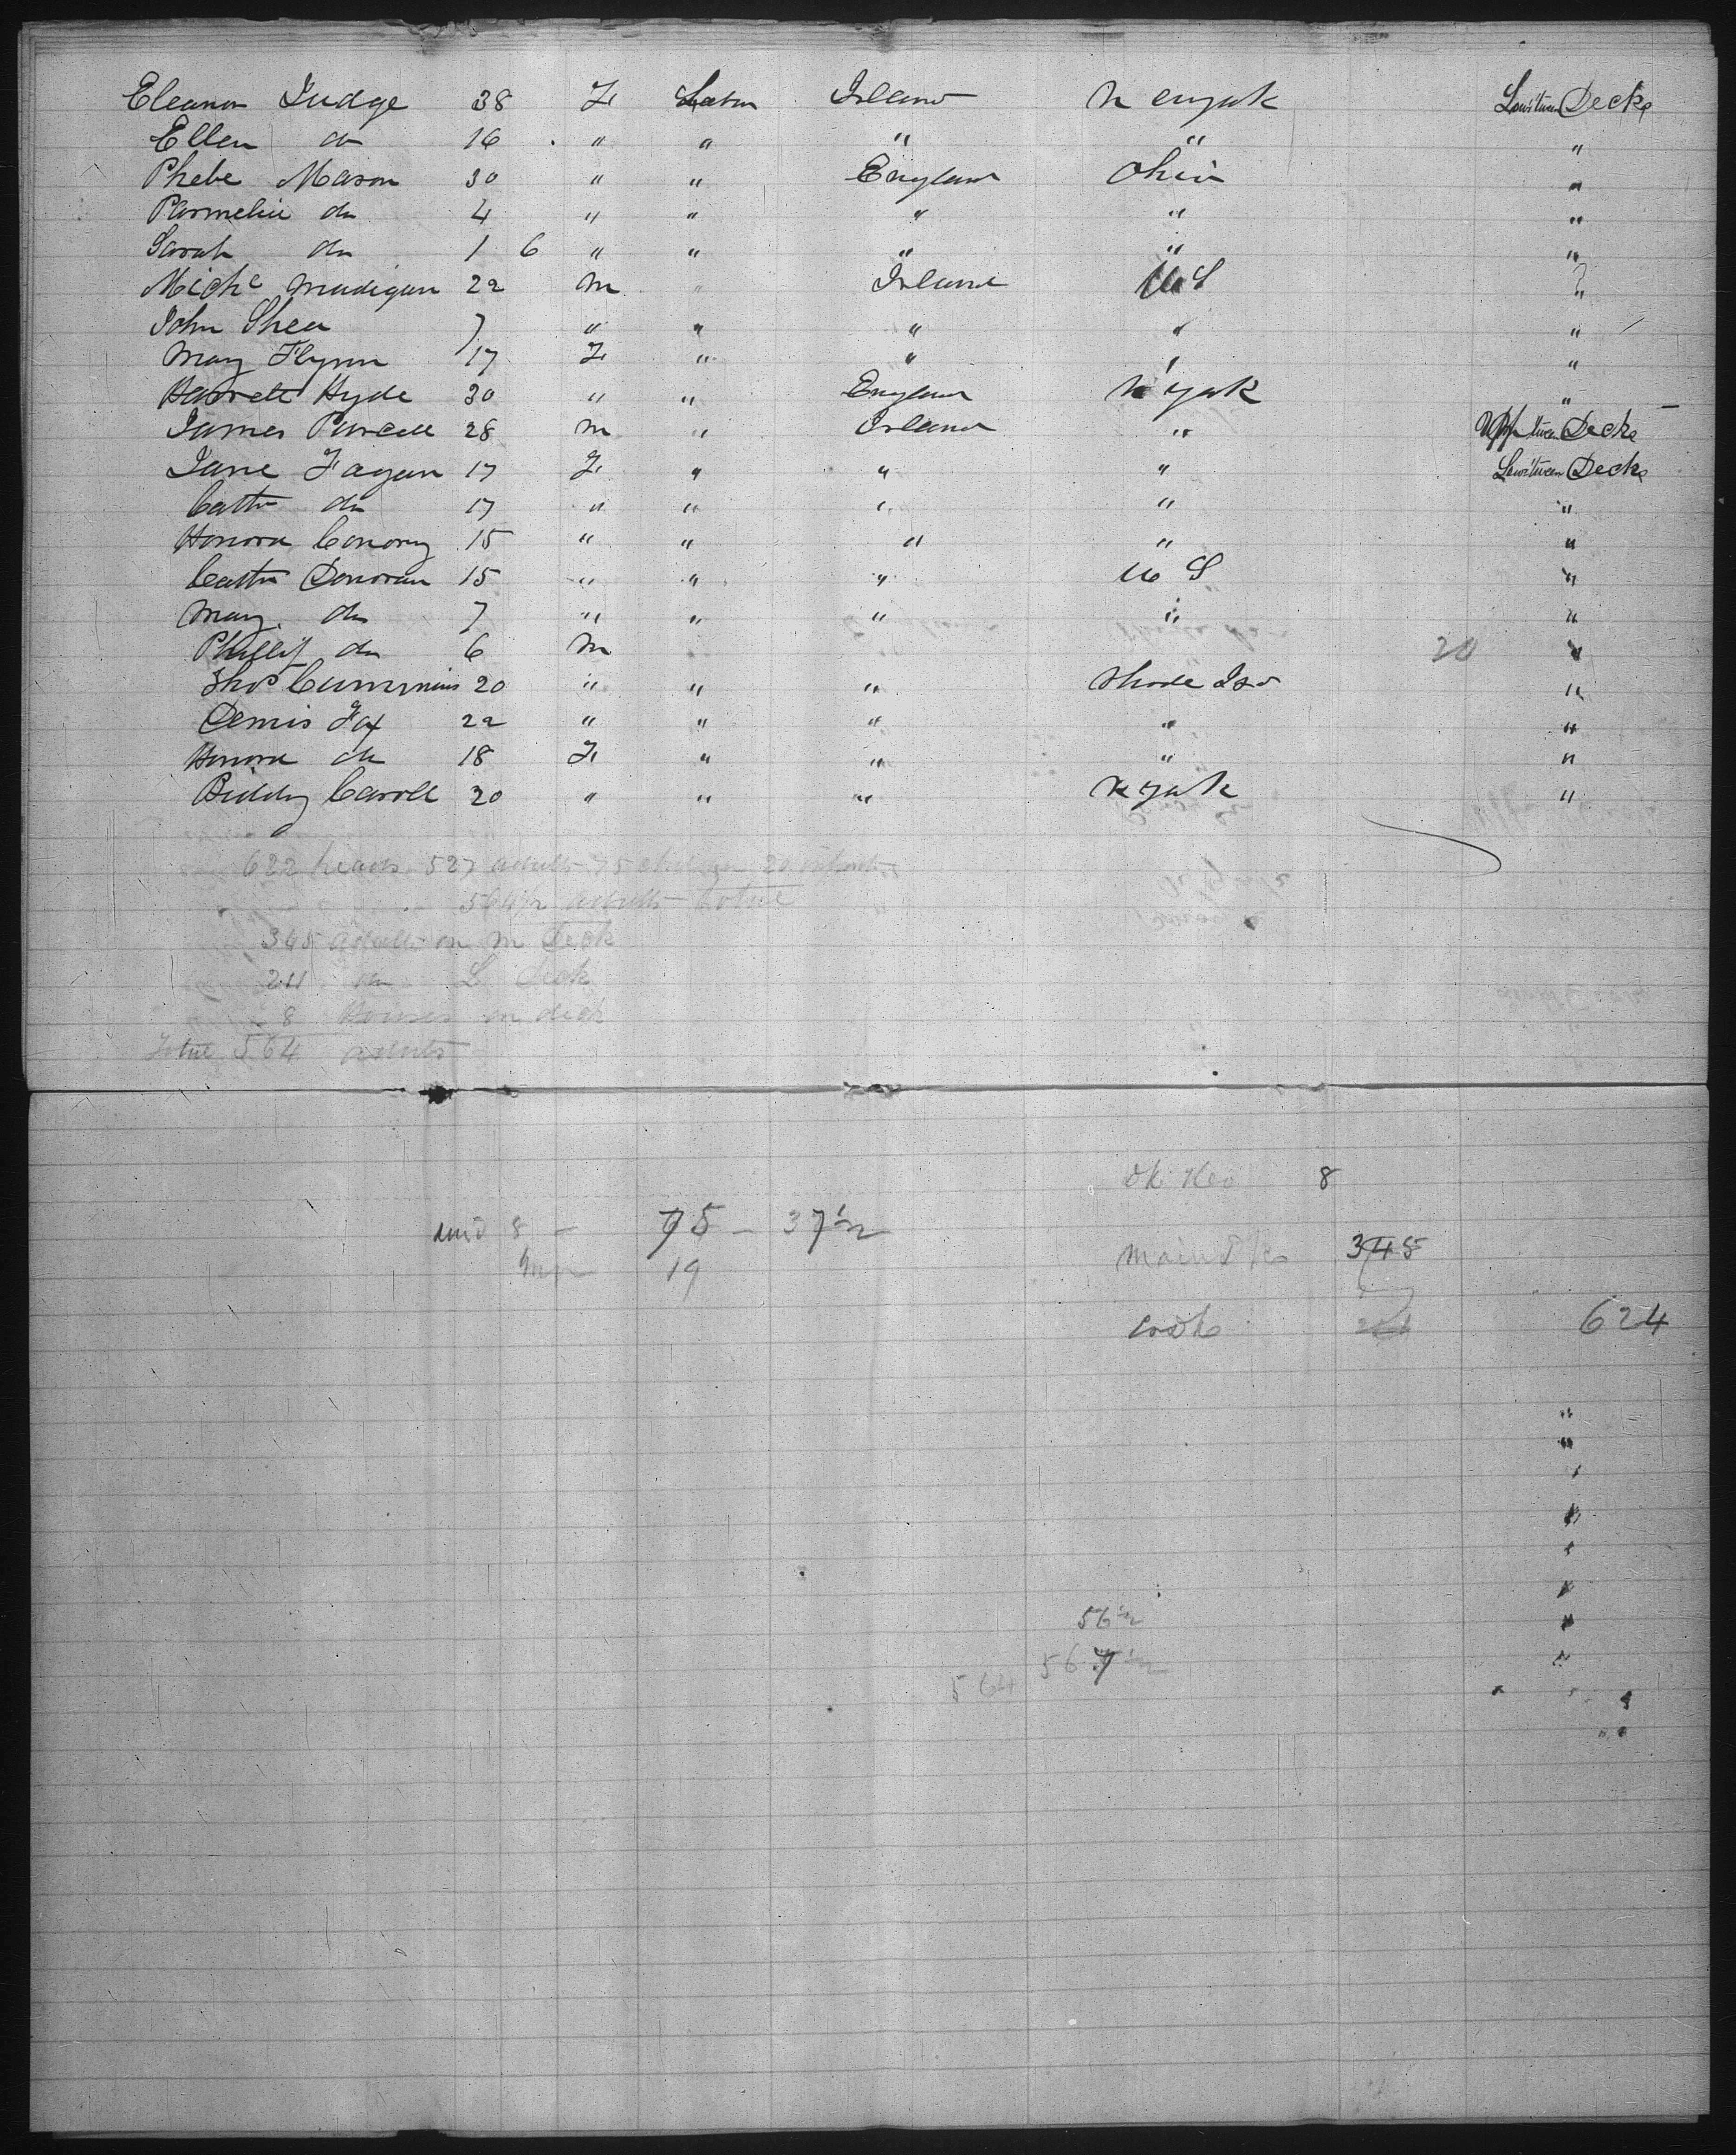 Eleanor Judge 38 F Labor Ireland N enyork Low'tween Decks
Ellen do 16 " " " " "
Phebe Mason 30 " " England Ohio "
Parmelia do 4 " " " " "
Sarah do 1 6 " " " " "
Michl Madigan 22 M " Ireland US "
John Shea 7 " " " " "
Mary Flynn 17 F " " " "
Harrett Hyde 30 " " England N York "
James Purcell 28 M " Ireland " Upp'tween Decks
Jane Fagan 17 F " " " Low'tween Decks
Cathn do 17 " " " " "
Honora Conory 15 " " " " "
Cathn Donovan 15 " " " U S "
Mary do 7 " " " " "
Phillip do 6 M 20 "
Thos Cummins 20 " " " Rhode Isd "
Dennis Fox 22 " " " " "
Honora do 18 F " " " "
Biddy Caroll 20 " " " N York "
622 heads 527 adults 75 children 20 infants
564½ adults total
345 adults on M Deck
211 do L Deck
8 Houses on deck
Total 564 adults
8
8 — 75 — 37½
Main Dk 348
19
624
56½
567½
564